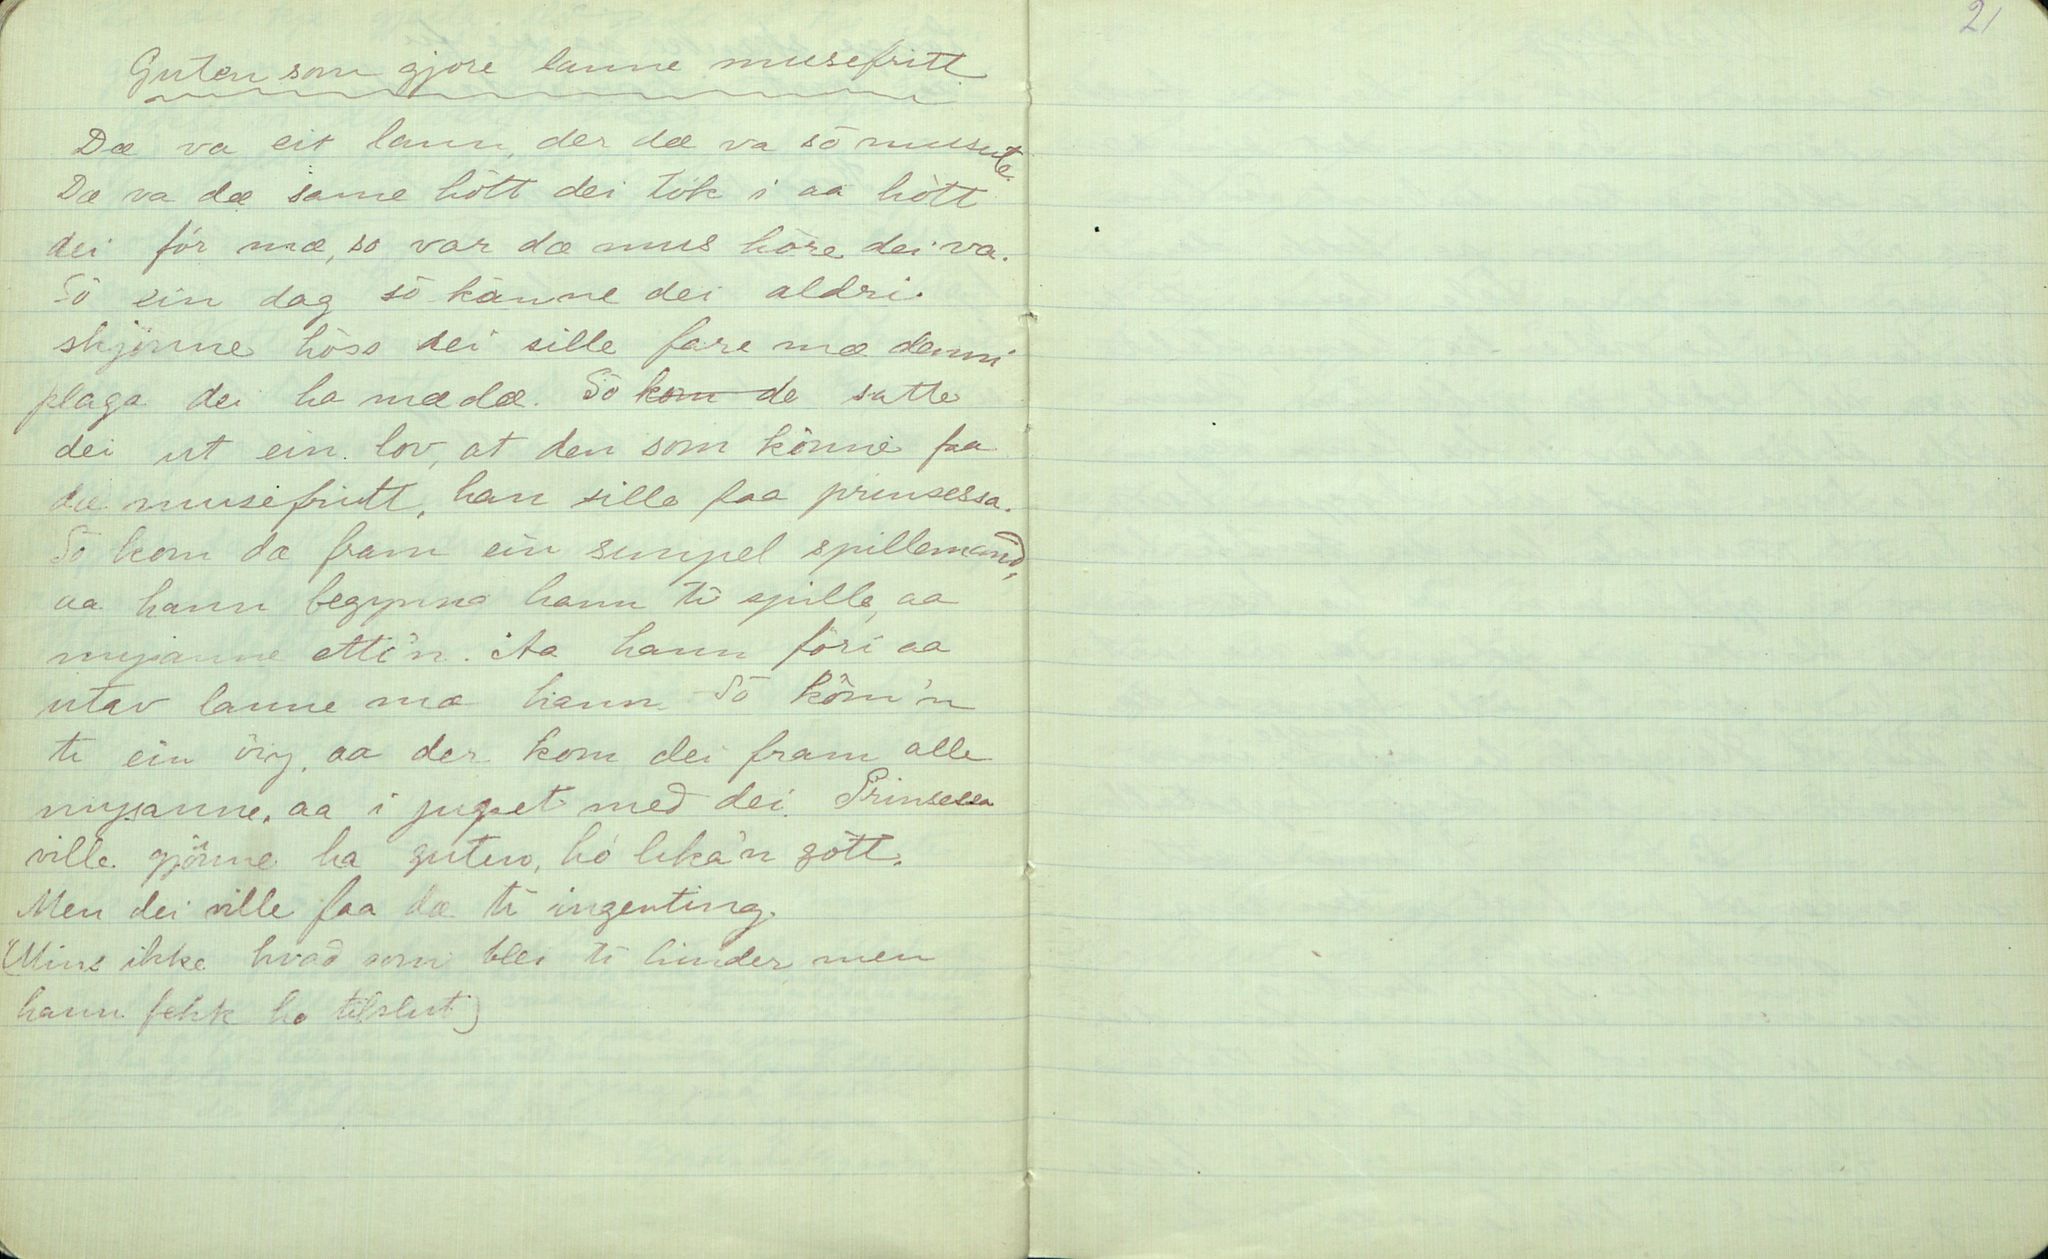 Guten som gjore lanne musefritt
Dæ va eit lann, der dæ va sö musute.
Dæ va dæ same hòtt dei tok i aa hòtt
dei fór mæ, so var dæ mus hòre dei va.
Sò ein dag sò kanne dei aldri
skjönne hòss dei sille fare mæ denni
plaga dei ha mædæ. Sò kom de satte
dei ut ein lov, at den som kònne faa
dæ musefritt, han sille faa prinsessa.
Sò kom dæ fram ein simpel spillemand,
aa hann begynna hann ti spille, aa
mysanne etti'n. Aa hann fòri aa
utav lanne mæ hann Sò kòm'n
ti ein öiy, aa der kom dei fram alle
mysanne, aa i jupet med dei. Prinsessa
ville gjönne ha guten, hó lika'n gòtt.
Men dei ville faa dæ ti ingenting.
(Mins ikke hvad som blei ti hinder men
hann fekk ho tilslut)
21